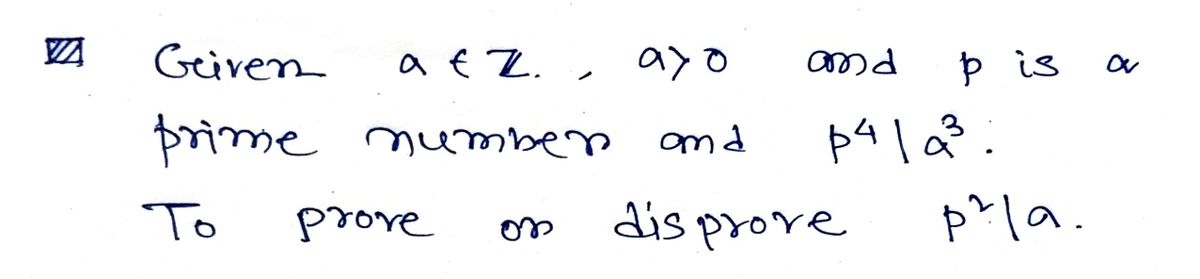 Given a ∈ Z., a>0 and p is a
prime number and p⁴|a³.
To prove or disprove p²|a.